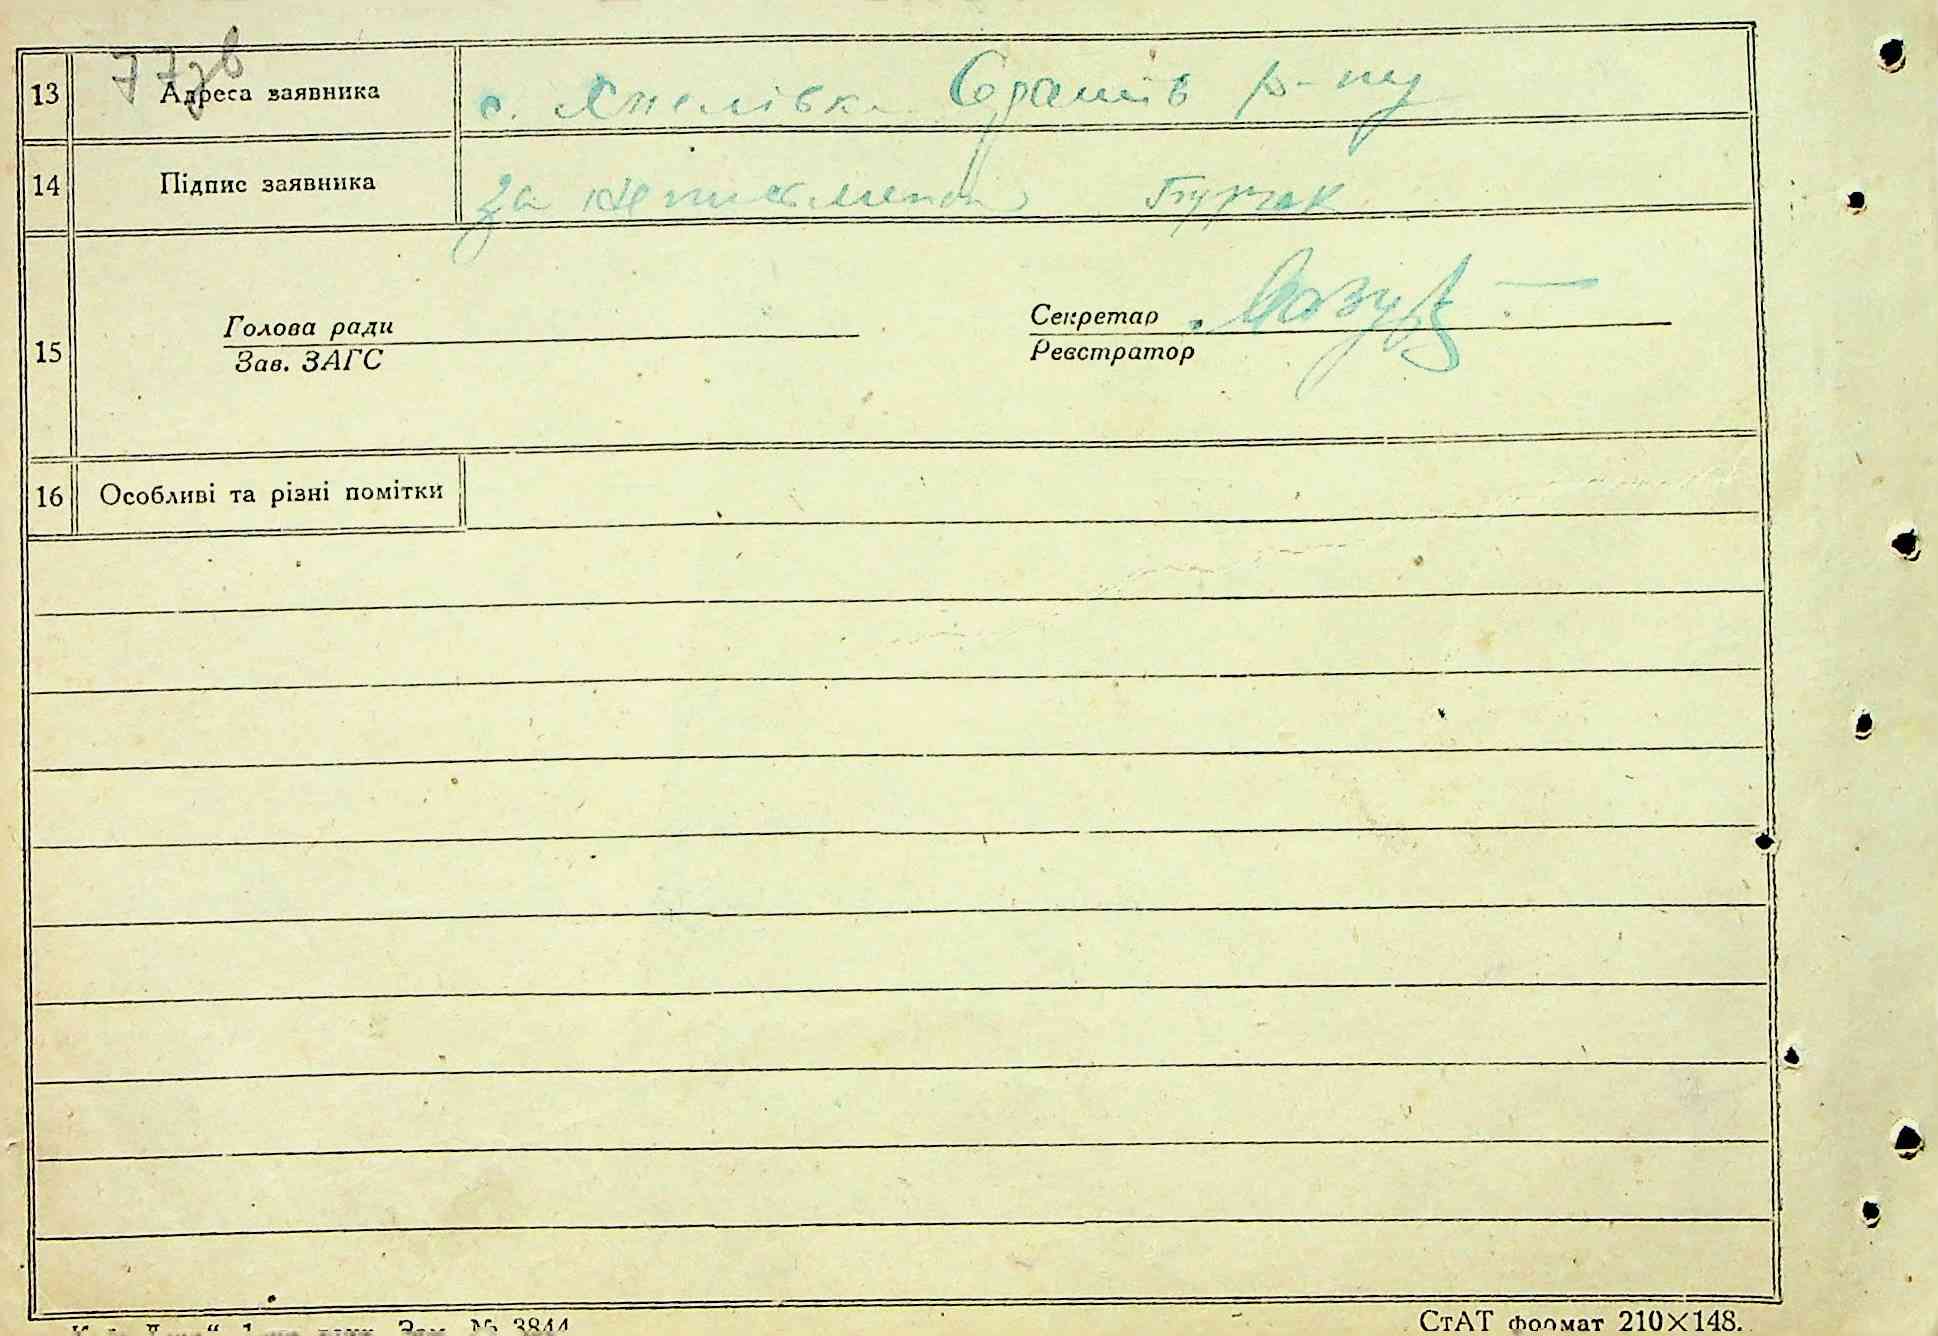 77зв
13 Адреса заявника с. Хмелівка Сдашів р-ну
14 Підпис заявника за неписьменого Бурлак
Голова ради Секретар
15
Зав. ЗАГС Реєстратор
16 Особливі та різні помітки
Зам. № 3844
СтАТ формат 210×148.